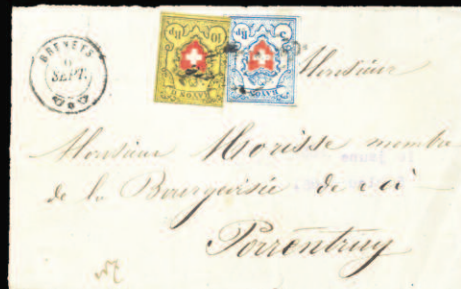 BRENETS
6
SEPT.
10 Rp.
RAYON II
5 Rp.
RAYON I
Monsieur
Monsieur Morisse membre
de la Bourgeoisie de et à
Porrentruy